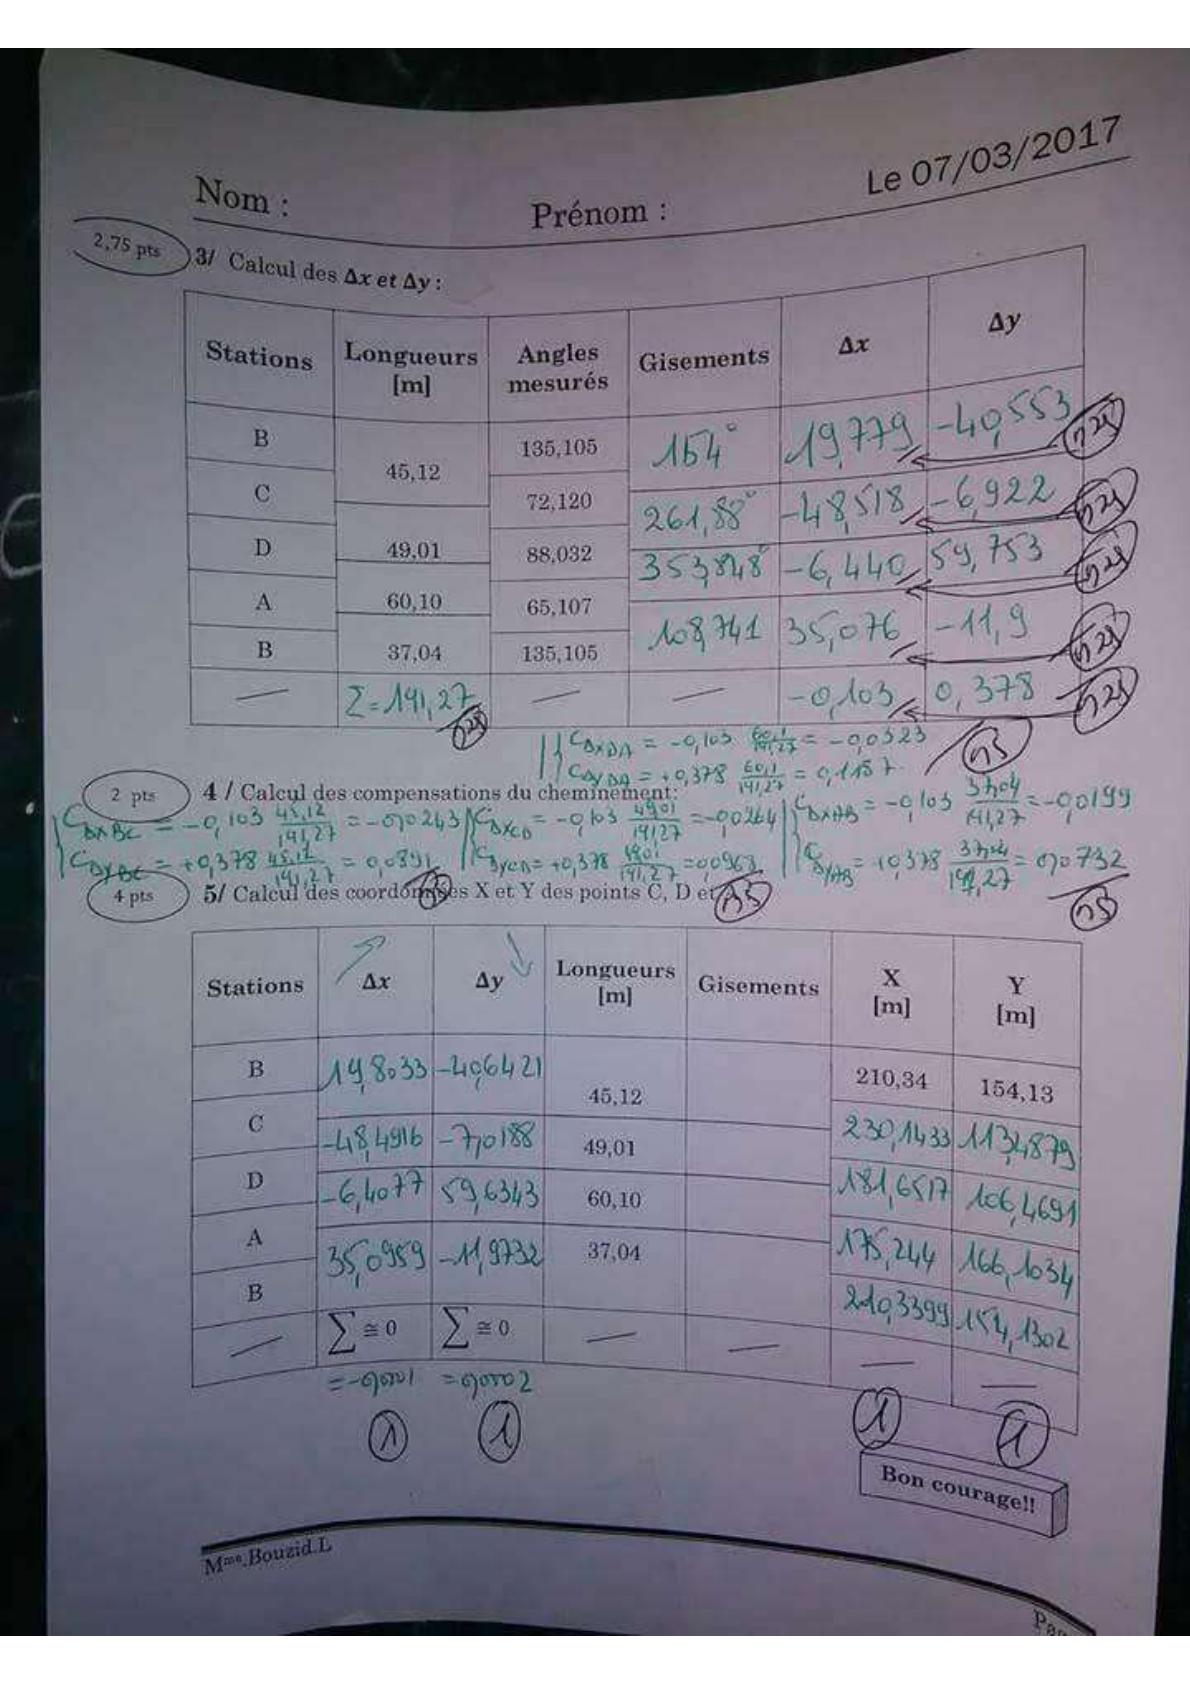 Le 07/03/2017
Nom :
Prénom :
2,75 pts
3/ Calcul des Δx et Δy :
Stations Longueurs [m] Angles mesurés Gisements Δx Δy
B 45,12 135,105 154° 19,779 -40,553 0,25
C 49,01 72,120 261,88° -48,518 -6,922 0,25
D 60,10 88,032 353,848° -6,440 59,753 0,25
A 37,04 65,107 108,741 35,076 -11,9 0,25
B 135,105
— Σ = 191,27 — — -0,103 0,378 0,25
0,25
C_ΔxDA = -0,103 60,1/191,27 = -0,0323
C_ΔyDA = +0,378 60,1/191,27 = 0,1187
0,5
2 pts
4 / Calcul des compensations du cheminement:
C_ΔxBC = -0,103 45,12/191,27 = -0,0243
C_ΔyBC = +0,378 45,12/191,27 = 0,0891
C_ΔxCD = -0,103 49,01/191,27 = -0,0264
C_ΔyCD = +0,378 49,01/191,27 = 0,0968
C_ΔxAB = -0,103 37,04/191,27 = -0,0199
C_ΔyAB = +0,378 37,04/191,27 = 0,0732
0,5
0,5
0,5
4 pts
5/ Calcul des coordonnées X et Y des points C, D et
Stations Δx Δy Longueurs [m] Gisements X [m] Y [m]
B 19,8033 -40,6421 45,12 210,34 154,13
C -48,4916 -7,0188 49,01 230,1433 113,4879
D -6,4077 59,6343 60,10 181,6517 106,4691
A 35,0959 -11,9732 37,04 175,244 166,1034
B 210,3399 154,1302
— ∑ ≅ 0 ∑ ≅ 0 — — — —
= -0,0001 = 0,0002
1 1 1 1
Bon courage!!
Mme.Bouzid.L